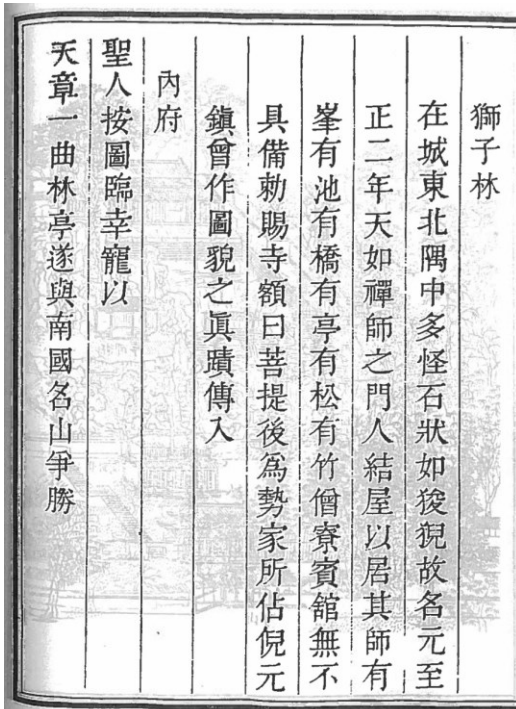 獅子林
在城東北隅中多怪石狀如狻猊故名元至
正二年天如禪師之門人結屋以居其師有
峯有池有橋有亭有松有竹僧寮賓舘無不
具備勅賜寺額曰菩提後爲勢家所佔倪元
鎮曾作圖貌之眞蹟傳入
內府
聖人按圖臨幸寵以
天章一曲林亭遂與南國名山爭勝